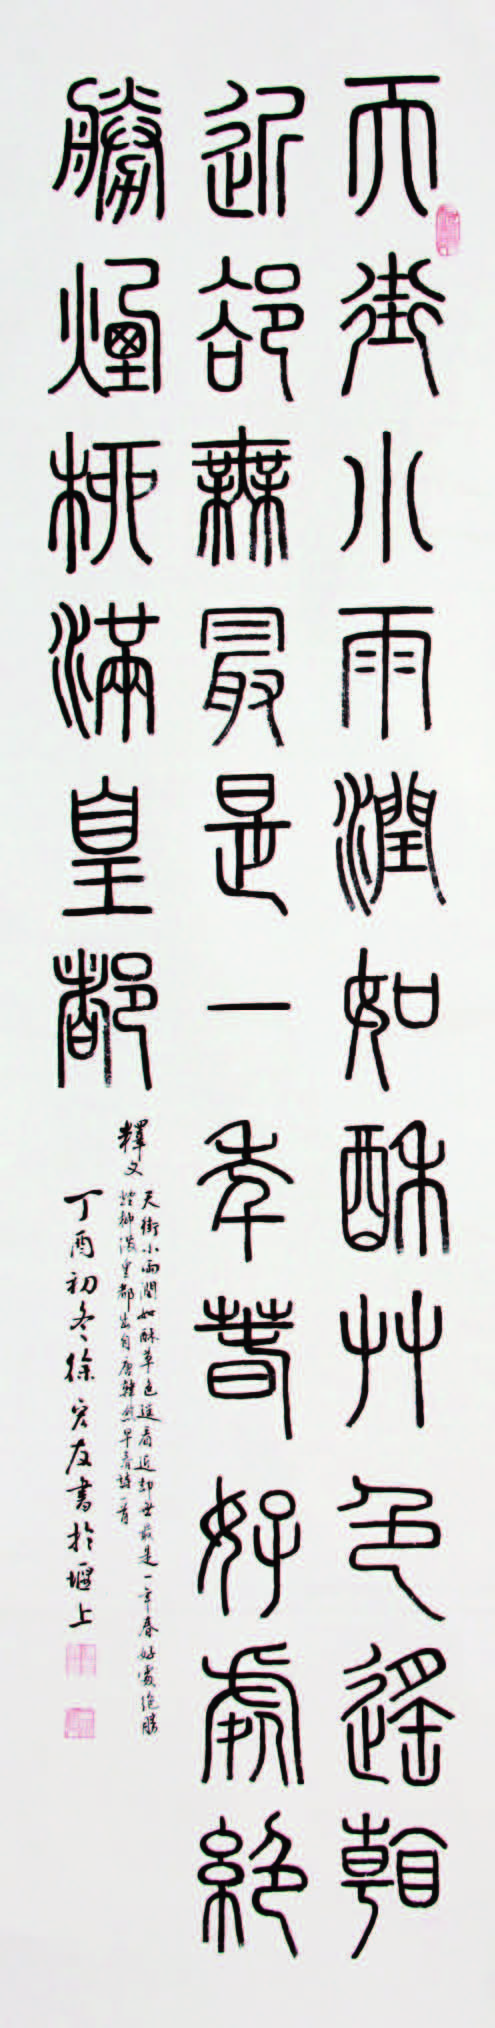 天街小雨潤如酥艸色遙䩞
近卻無最是一年萅好処絕
勝煙柳滿皇都
釋文
天街小雨潤如酥草色遥看近却無最是一年春好處絶勝
煙柳滿皇都出自唐韓愈早春詩一首
丁酉初冬徐宏友書於堰上